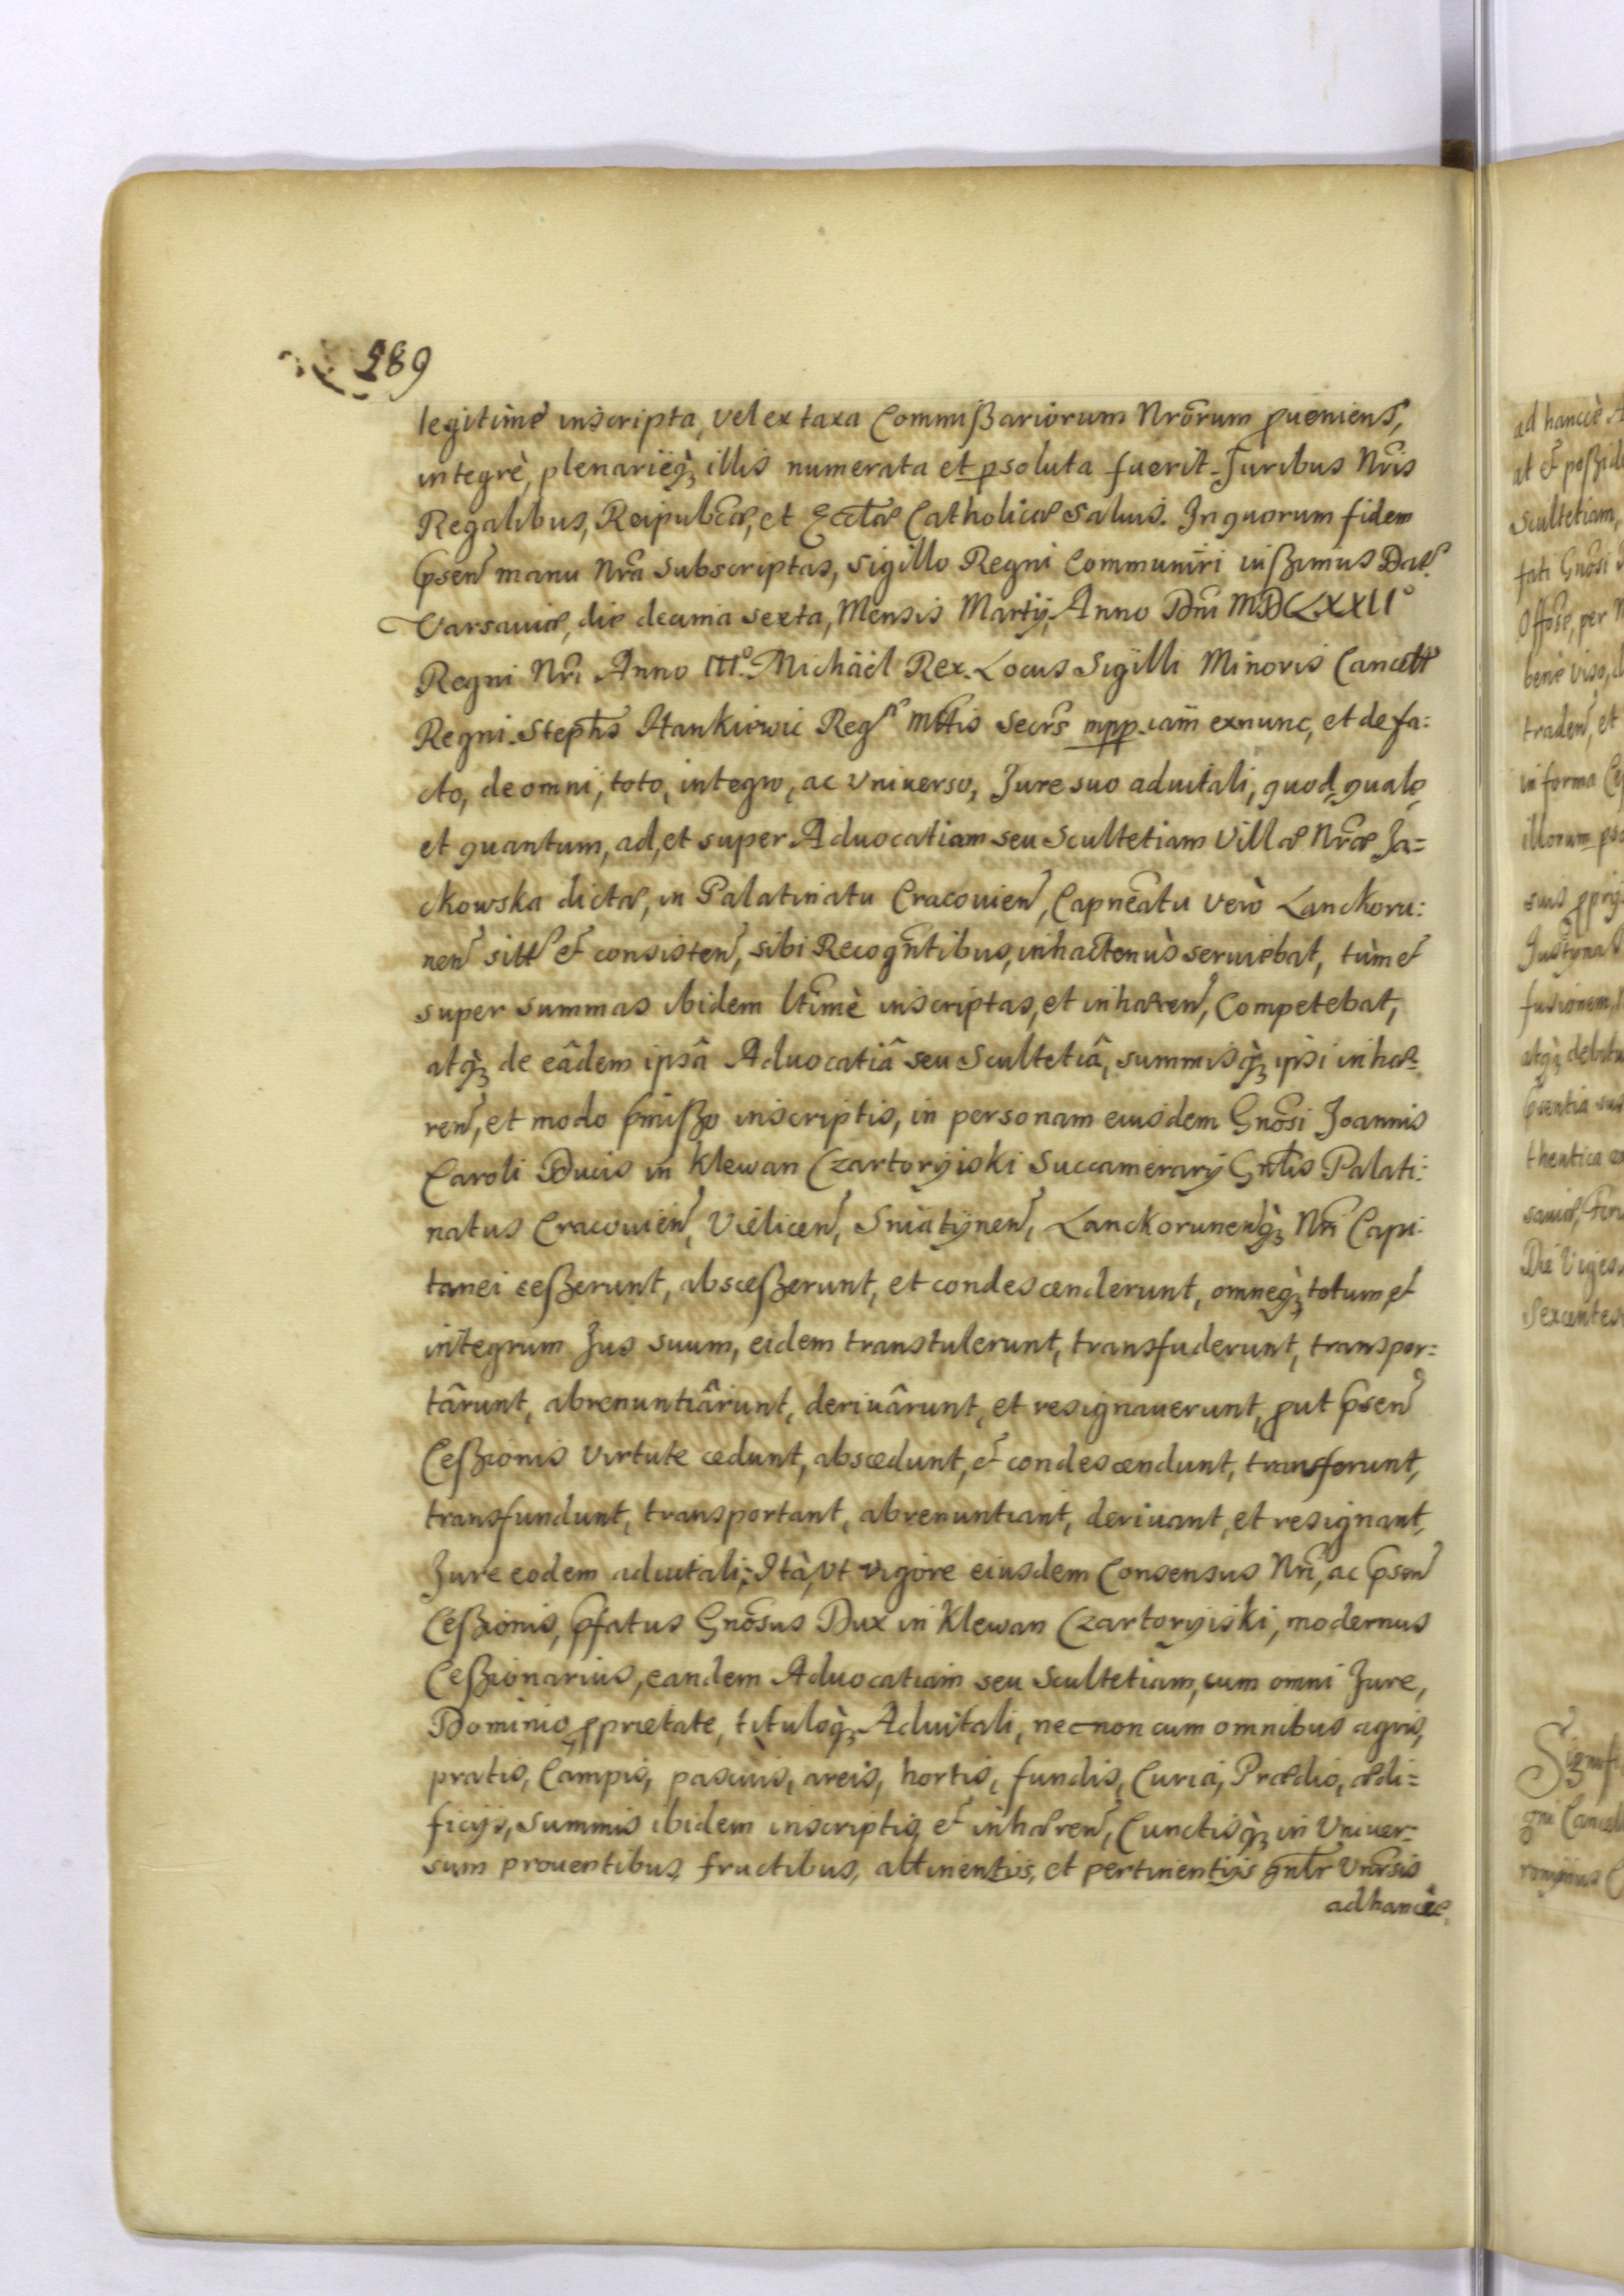 589
legitimè inscripta, vel ex taxa Commißariorum Nrõrum pueniens,
integrè, plenarieq̀ȝ illis numerata et psoluta fuerit. Juribus Nrĩs
Regalibus, Reipublcæ, et Ecclæ Catholicæ salvis. In quorum fidem
psen̄ manu Nrã subscriptas, sigillo Regni Communiri iußimus Dat̃
Varsaviæ, die decima sexta, Mensis Martij, Anno Dnĩ MDCLXXII°
Regni Nrĩ Anno III° Michaël Rex. Locus Sigilli Minoris Cancell̃
Regni. Stephs Hankiewic Reg̃ Mttis Secrs mpp. iam exnunc, et de fa:
cto, de omni, toto, integro, ac Universo, Jure suo advitali, quod, quale,
et quantum, ad, et super Advocatiam seu Scultetiam Villæ Nrǣ Ja=
ckowska dictæ, in Palatinatu Cracovien̄, Capneatu verò Lanckoru:
nen̄ sitt̃ et consisten̄, sibi Recogntibus, inhactenùs serviebat, tùm et
super summas ibidem ltimè inscriptas, et inhæren̄, Competebat,
atq̀ȝ de eâdem ipsâ Advocatiâ seu Scultetiâ, summisq̀ȝ ipsi inhæ=
ren̄, et modo pmißo inscriptis, in personam eiusdem Gnõsi Joannis
Caroli Ducis in Klewan Czartoryiski Succamerarij Gnlis Palati:
natus Cracovien̄, Vielicen̄, Sniatynen̄, Lanckorunenq̀ȝ Nrĩ Capi:
tanei ceßerunt, absceßerunt, et condescenderunt, omneq̀ȝ totum, et
integrum Jus suum, eidem transtulerunt, transfuderunt, transpor=
târunt, abrenuntiârunt, derivârunt, et resignaverunt, put psen̄
Ceßionis virtute cedunt, abscedunt, et condescendunt, transferunt,
transfundunt, transportant, abrenuntiant, derivant, et resignant,
Jure eodem advitali; Ità, vt vigore eiusdem Consensus Nrĩ, ac psen̄
Ceßionis, pfatus Gnõsus Dux in Klewan Czartoryiski, modernus
Ceßionarius, eandem Advocatiam seu Scultetiam, cum omni Jure,
Dominio, pprietate, tituloq̀ȝ Advitali, necnon cum omnibus agris,
pratis, Campis, pascuis, areis, hortis, fundis, Curia, Prædio, ædi=
ficijs, summis ibidem inscriptis, et inhæren̄, Cunctisq̀ȝ in Univer=
sum proventibus, fructibus, attinentijs, et pertinentijs gnlr Vnrsis
ad hancce